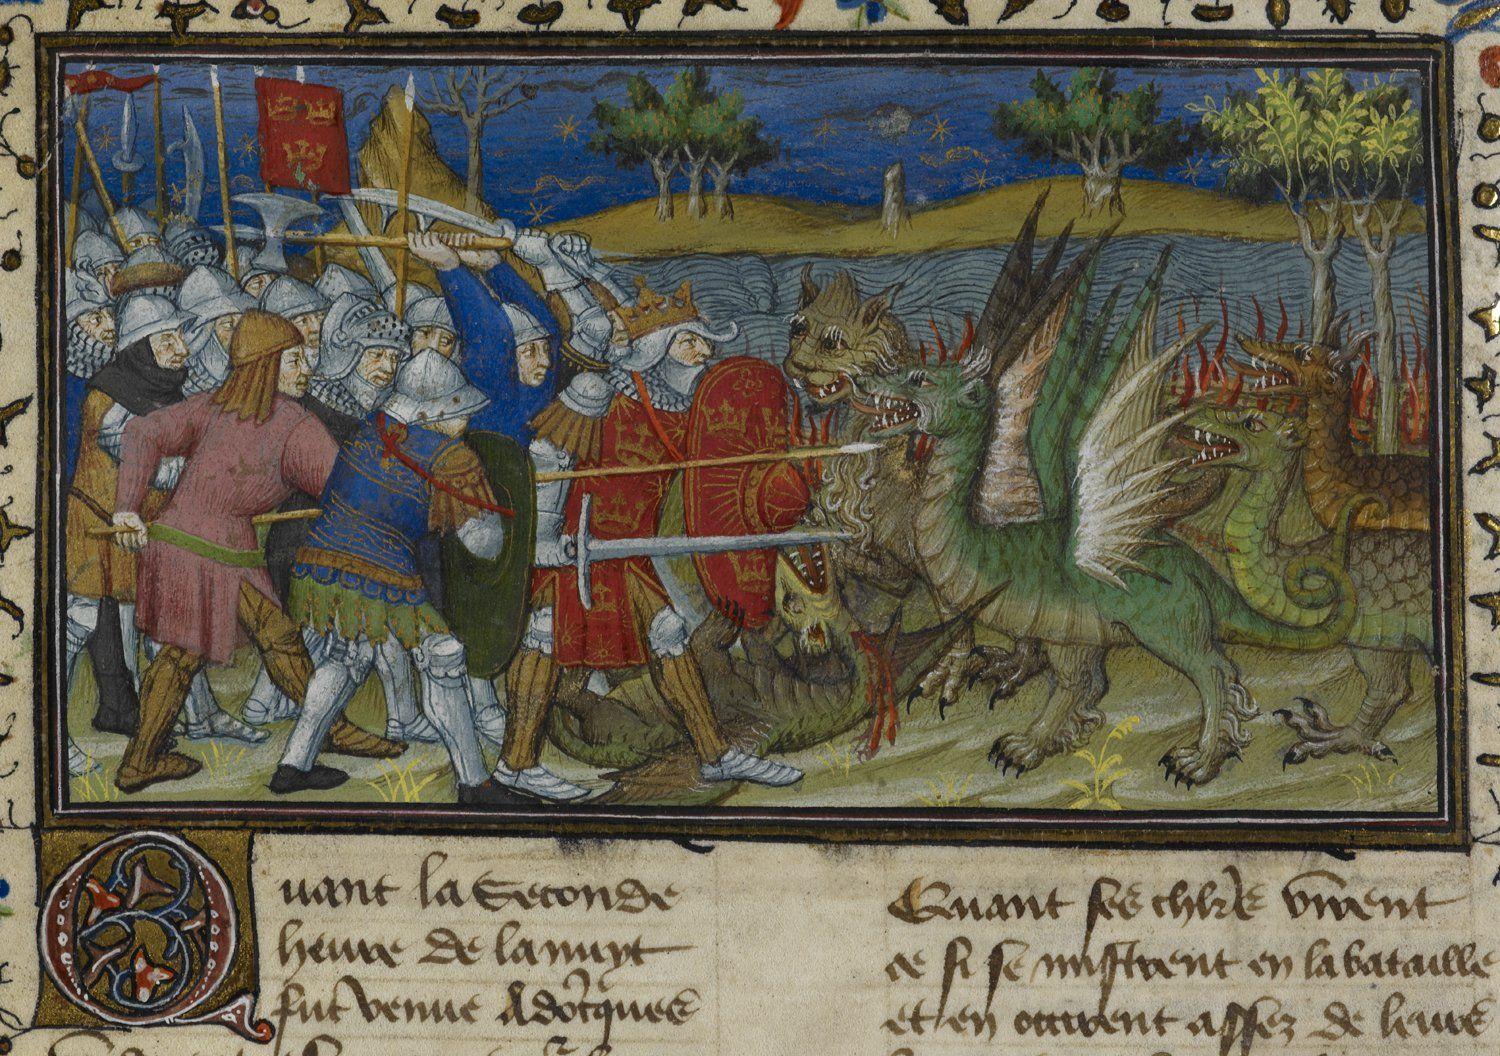 Quant la seconde
heure de la nuyt
fut venue Adõcques
Quant ses chl'rs virent
ce si se mistrent en la bataille
et en occirent assez de leurs